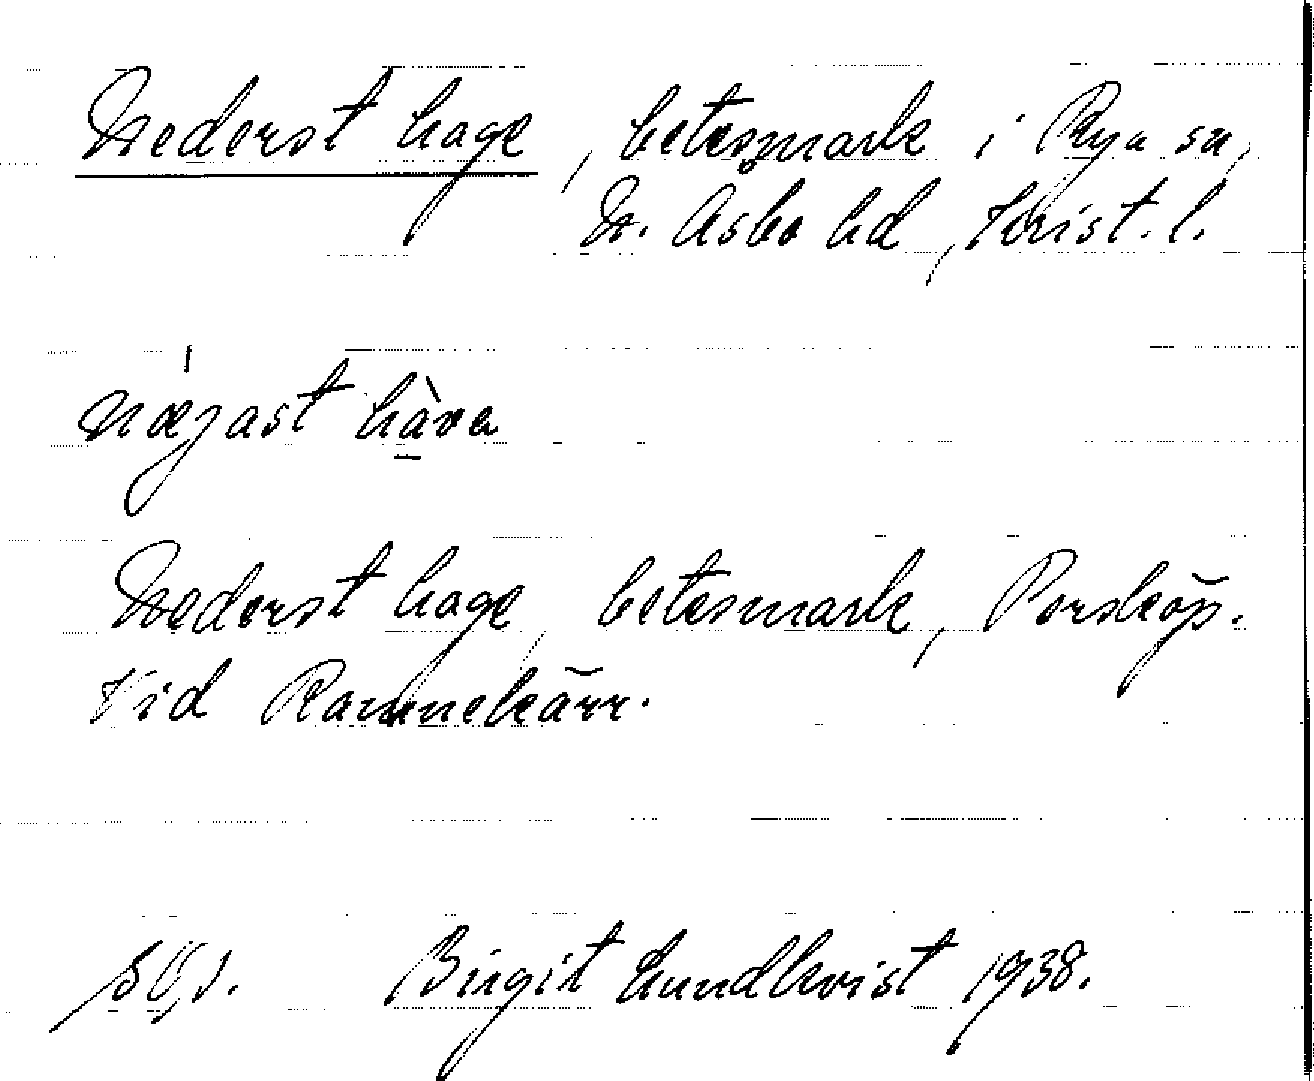 Nederst hage, betesmark i Rya sn,
N. Åsbo hd, Krist. l.
næjast hàva
Nederst hage, betesmark, Porsköp.
Vid Rammekärr.
Birgit Lundkvist 1938.